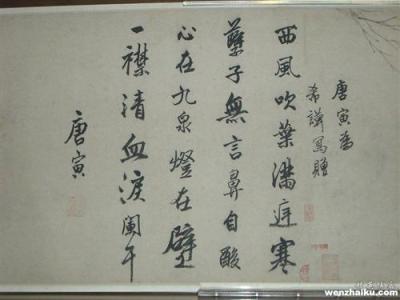 唐寅為
希謨寫贈
西風吹葉滿庭寒
孽子無言鼻自酸
心在九泉燈在壁
一襟清血淚闌干
唐寅
wenzhaiku.com